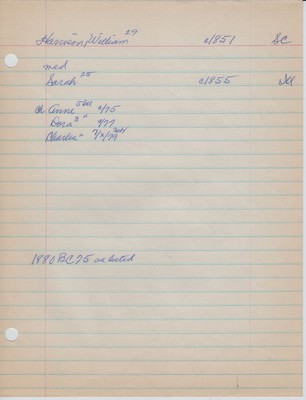 Harrison, William 29 c/851 SC
med
Sarah 25 c/855
ch Anne 5 c/75
Dora 3 " c/77
Charles "
1880 BC 75 as listed